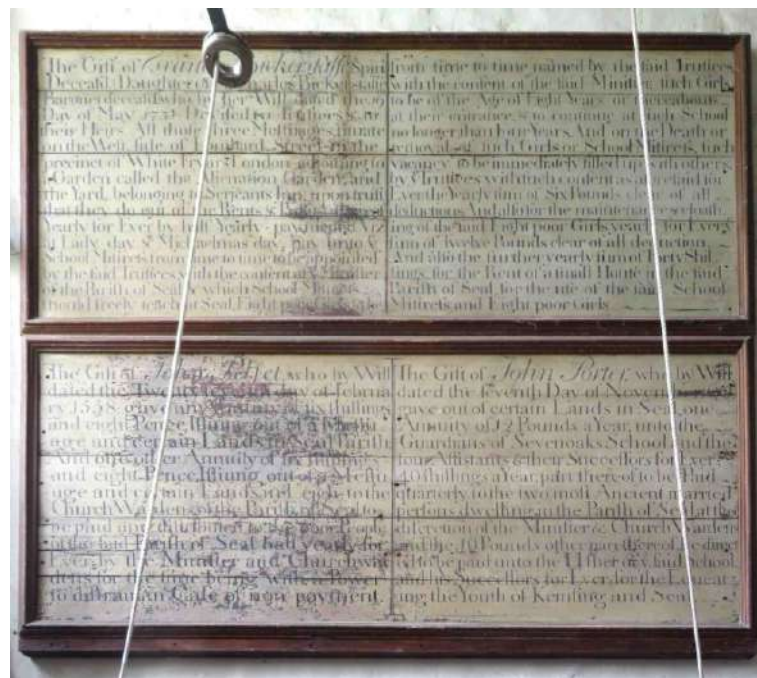 The Gift of
Deceas'd Daughter
Baronet deceas'd who by Her Will dated the
Day of May
their Heirs All those Three Messuages situate
on the West side of Street in the
precinct of White Fryars London adjoining to
a Garden called the Alienation Garden and
the Yard belonging to Serjeants Inn upon trust
they do out of the Rents &
Yearly for Ever by
at Lady day & Michaelmas day pay unto a
School Mistress from time to time to be appointed
by the said Trustees with the consent of Minister
of the Parish of Seal which School Mistress
should freely teach at Seal Eight poor
from time to time named by the said Trustees
with the consent of the said Minister such Girls
to be of the Age of Eight Years or thereabouts
at their entrance & to continue at such School
no longer than four Years And on the Death or
removal of such Girls or School Mistress such
vacancy to be immediately filled up with others
by & Trustees with such consent as aforesaid for
Ever the yearly sum of Six Pounds clear of all
deductions And also for the maintenance
ing of the said Eight poor Girls yearly for Every
sum of Twelve Pounds clear of all deduction
And also the further yearly sum of Forty Shil
lings for the Rent of a small House in the said
Parish of Seal for the use of the said School
Mistress and Eight poor Girls
The Gift of John who by Will
dated the Twenty day of Februa
ry 1558 gave an Annuity of six shillings
and eight Pence Issuing out of a
age and certain Lands in Seal Parish
And of another Annuity of six shillings
and eight Pence Issuing out of a Messu
age and certain Lands to the
Church Wardens of the Parish of Seal to
be paid unto the poor People
of the said Parish of Seal half yearly for
Ever by the Minister and Churchwar
dens for the time being With a Power
to distrain in Case of non payment.
The Gift of John Porter, who by Will
dated the seventh Day of November
gave out of certain Lands in Seal, one
Annuity of 12 Pounds a Year, unto the
Guardians of Sevenoaks School and the
four Assistants & their Successors for Ever
40 shillings a Year, part thereof to be Paid
quarterly, to the two most Ancient married
Persons dwelling in the Parish of Seal at the
discretion of the Minister & Church Wardens
and the 10 Pounds other part thereof
to be paid unto the Usher of & said School
and his Successors for Ever for the Educat
ing the Youth of Kemsing and Seal